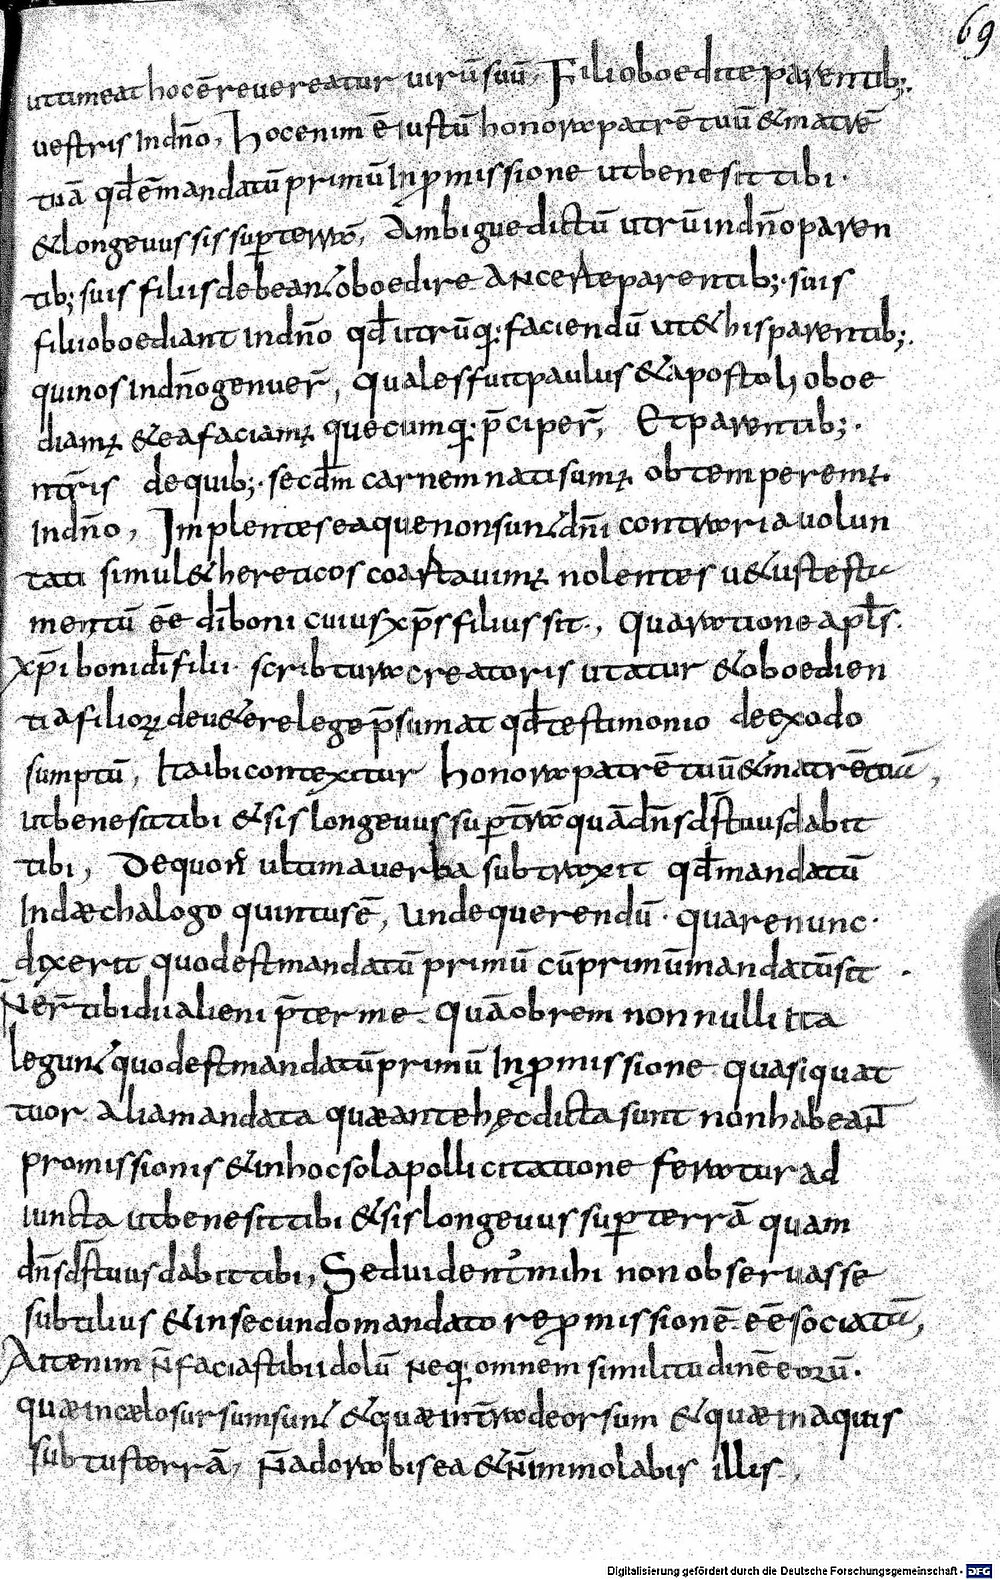 69
ut timeat hoc ē revereatur virū suū, Filii oboedite parentib;.
vestris In dn̄o, Hoc enim ē iustū honora patrē tuū & matrē
tuā qđ ē mandatū primū In ꝓmissione ut bene sit tibi.
& longevus sis suꝑ terrā, Ambigue dictū utrū in dn̄o paren
tib; suis filii debeant oboedire an certe parentib;. suis
filii oboediant in dn̄o qđ utrūq: faciendū ut & his parentib;.
qui nos in dn̄o genuer̄, quales fuit paulus & apostoli oboe
diamꝰ & ea faciamꝰ quecumq: p̄ceper̄, Et parentib;.
nr̄is de quib;. secd̄m carnem nati sumꝰ obtemperemꝰ
In dn̄o, Implentes ea que non sunt dn̄i contraria volun
tati simul & hereticos coartavimꝰ nolentes vetus testa
mentū ēē dī boni cuius xp̄s filius sit, Qua ratione apl̄s.
xp̄i boni dī filii scribtura creatoris utatur & oboedien
tia filioꝝ de vetere lege p̄sumat qđ testimonio de exodo
sumptū, Ita ibi contexitur honora patrē tuū & matrē tuā,
ut bene sit tibi & sis longevus suꝑ trā quā dn̄s ds̄ tuus dabit
tibi, De quo nr̄ ultima verba subtraxit qđ mandatū
In dæchalogo quintus ē, Unde querendū. quare nunc.
dixerit quod est mandatū primū cū primū mandatū sit.
N̄ er̄ tibi dii alieni p̄ter me. Quā ob rem non nulli ita
legunt quod est mandatū primū In ꝓmissione quasi quat
tuor alia mandata quæ ante hęc dicta sunt non habeant
promissionis & in hoc sola pollicitatione feratur ad
iuncta ut bene sit tibi & sis longevus suꝑ terrā quam
dn̄s ds̄ tuus dabit tibi, Sed videntᷣ mihi non observasse
subtilius & in secundo mandato reꝓmissionē ēē sociatā,
Ait enim n̄ facias tibi idolū neq: omnem similitudinē eorū.
quæ in cælo sursum sunt & quæ in t̄ra deorsum & quæ in aquis
subtus terrā, n̄ adorabis ea & n̄ immolabis illis,
Digitalisierung gefördert durch die Deutsche Forschungsgemeinschaft - DFG